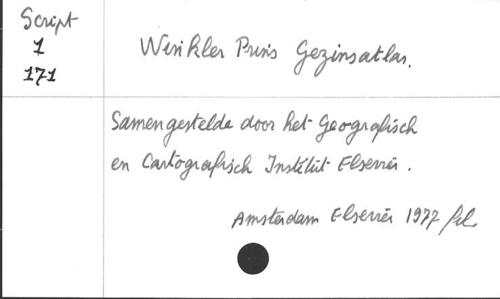 Script
1
171
Winkler Prins Gezinsatlas.
Samengestelde door het Geografisch
en Cartografisch Instituut Elsevier.
Amsterdam Elsevier 1977